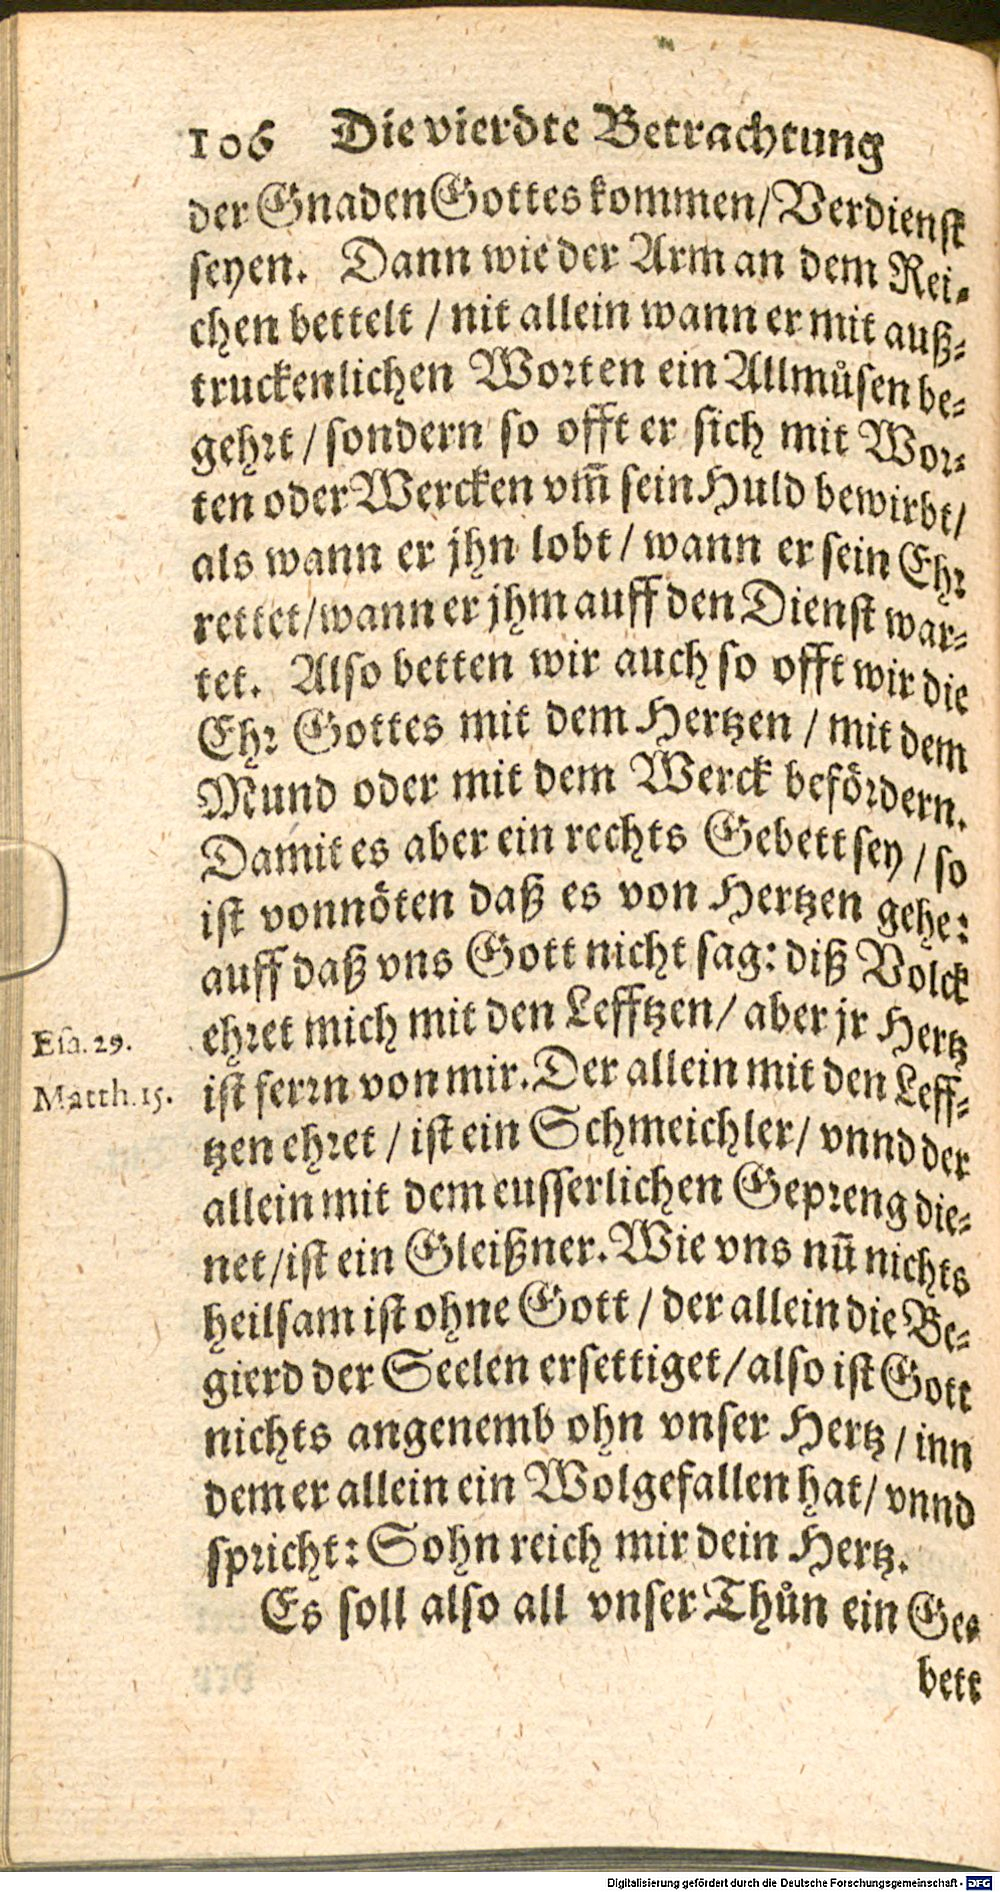 106 Die vierdte Betrachtung
der Gnaden Gottes kommen/ Verdienst
seyen. Dann wie der Arm an dem Rei-
chen bettelt / nit allein wann er mit auß-
truckenlichen Worten ein Allmůsen be-
gehrt / sondern so offt er sich mit Wor-
ten oder Wercken vm̃ sein Huld bewirbt/
als wann er jhn lobt / wann er sein Ehr
rettet/ wann er jhm auff den Dienst war-
tet. Also betten wir auch so offt wir die
Ehr Gottes mit dem Hertzen / mit dem
Mund oder mit dem Werck befördern.
Damit es aber ein rechts Gebett sey / so
ist vonnöten daß es von Hertzen gehe:
auff daß vns Gott nicht sag: diß Volck
Esa. 29. ehret mich mit den Lefftzen/ aber jr Hertz
Matth. 15. ist ferrn von mir. Der allein mit den Leff-
tzen ehret / ist ein Schmeichler/ vnnd der
allein mit dem eusserlichen Gepreng die-
net/ ist ein Gleißner. Wie vns nũ nichts
heilsam ist ohne Gott / der allein die Be-
gierd der Seelen ersettiget/ also ist Gott
nichts angenemb ohn vnser Hertz / inn
dem er allein ein Wolgefallen hat/ vnnd
spricht: Sohn reich mir dein Hertz.
Es soll also all vnser Thůn ein Ge-
bett
Digitalisierung gefördert durch die Deutsche Forschungsgemeinschaft - DFG